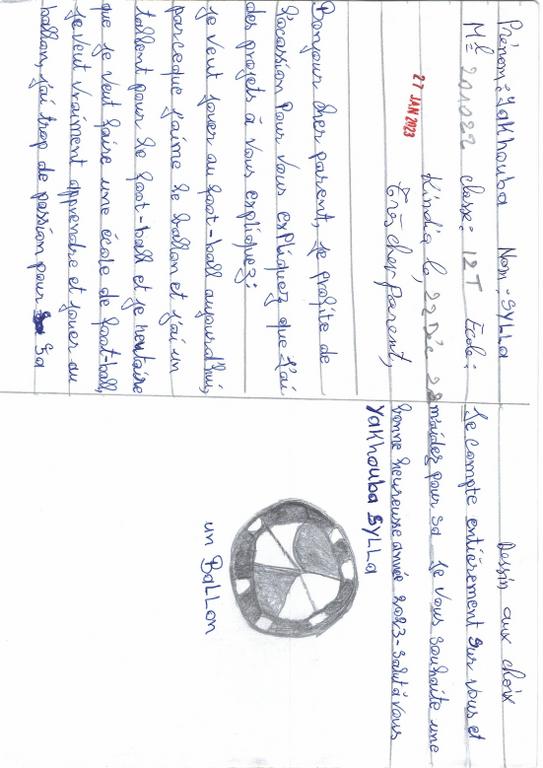 Prénom: Yakhouba Nom: SYLLA
Mle 201022 classe: 12T école:
Kindia le, 22 Déc 22
27 JAN 2023
Très cher parent,
Bonjour cher parent, je profite de
l'ocassion pour vous expliquez que j'ai
des projets à vous expliquez:
Je veut jouer au foot-ball aujourd'hui,
parceque j'aime le ballon et j'ai un
tallent pour le foot-ball et je
que je veut faire une école de foot-ball,
Je veut vraiment apprendre et jouer au
ballon, j'ai trop de passion pour sa
Dessin aux choix
Je compte entièrement sur vous et
m'aidez pour sa je vous souhaite une
bonne heureuse année 2023- salut à vous
Yakhouba SYLLA
un BaLLon